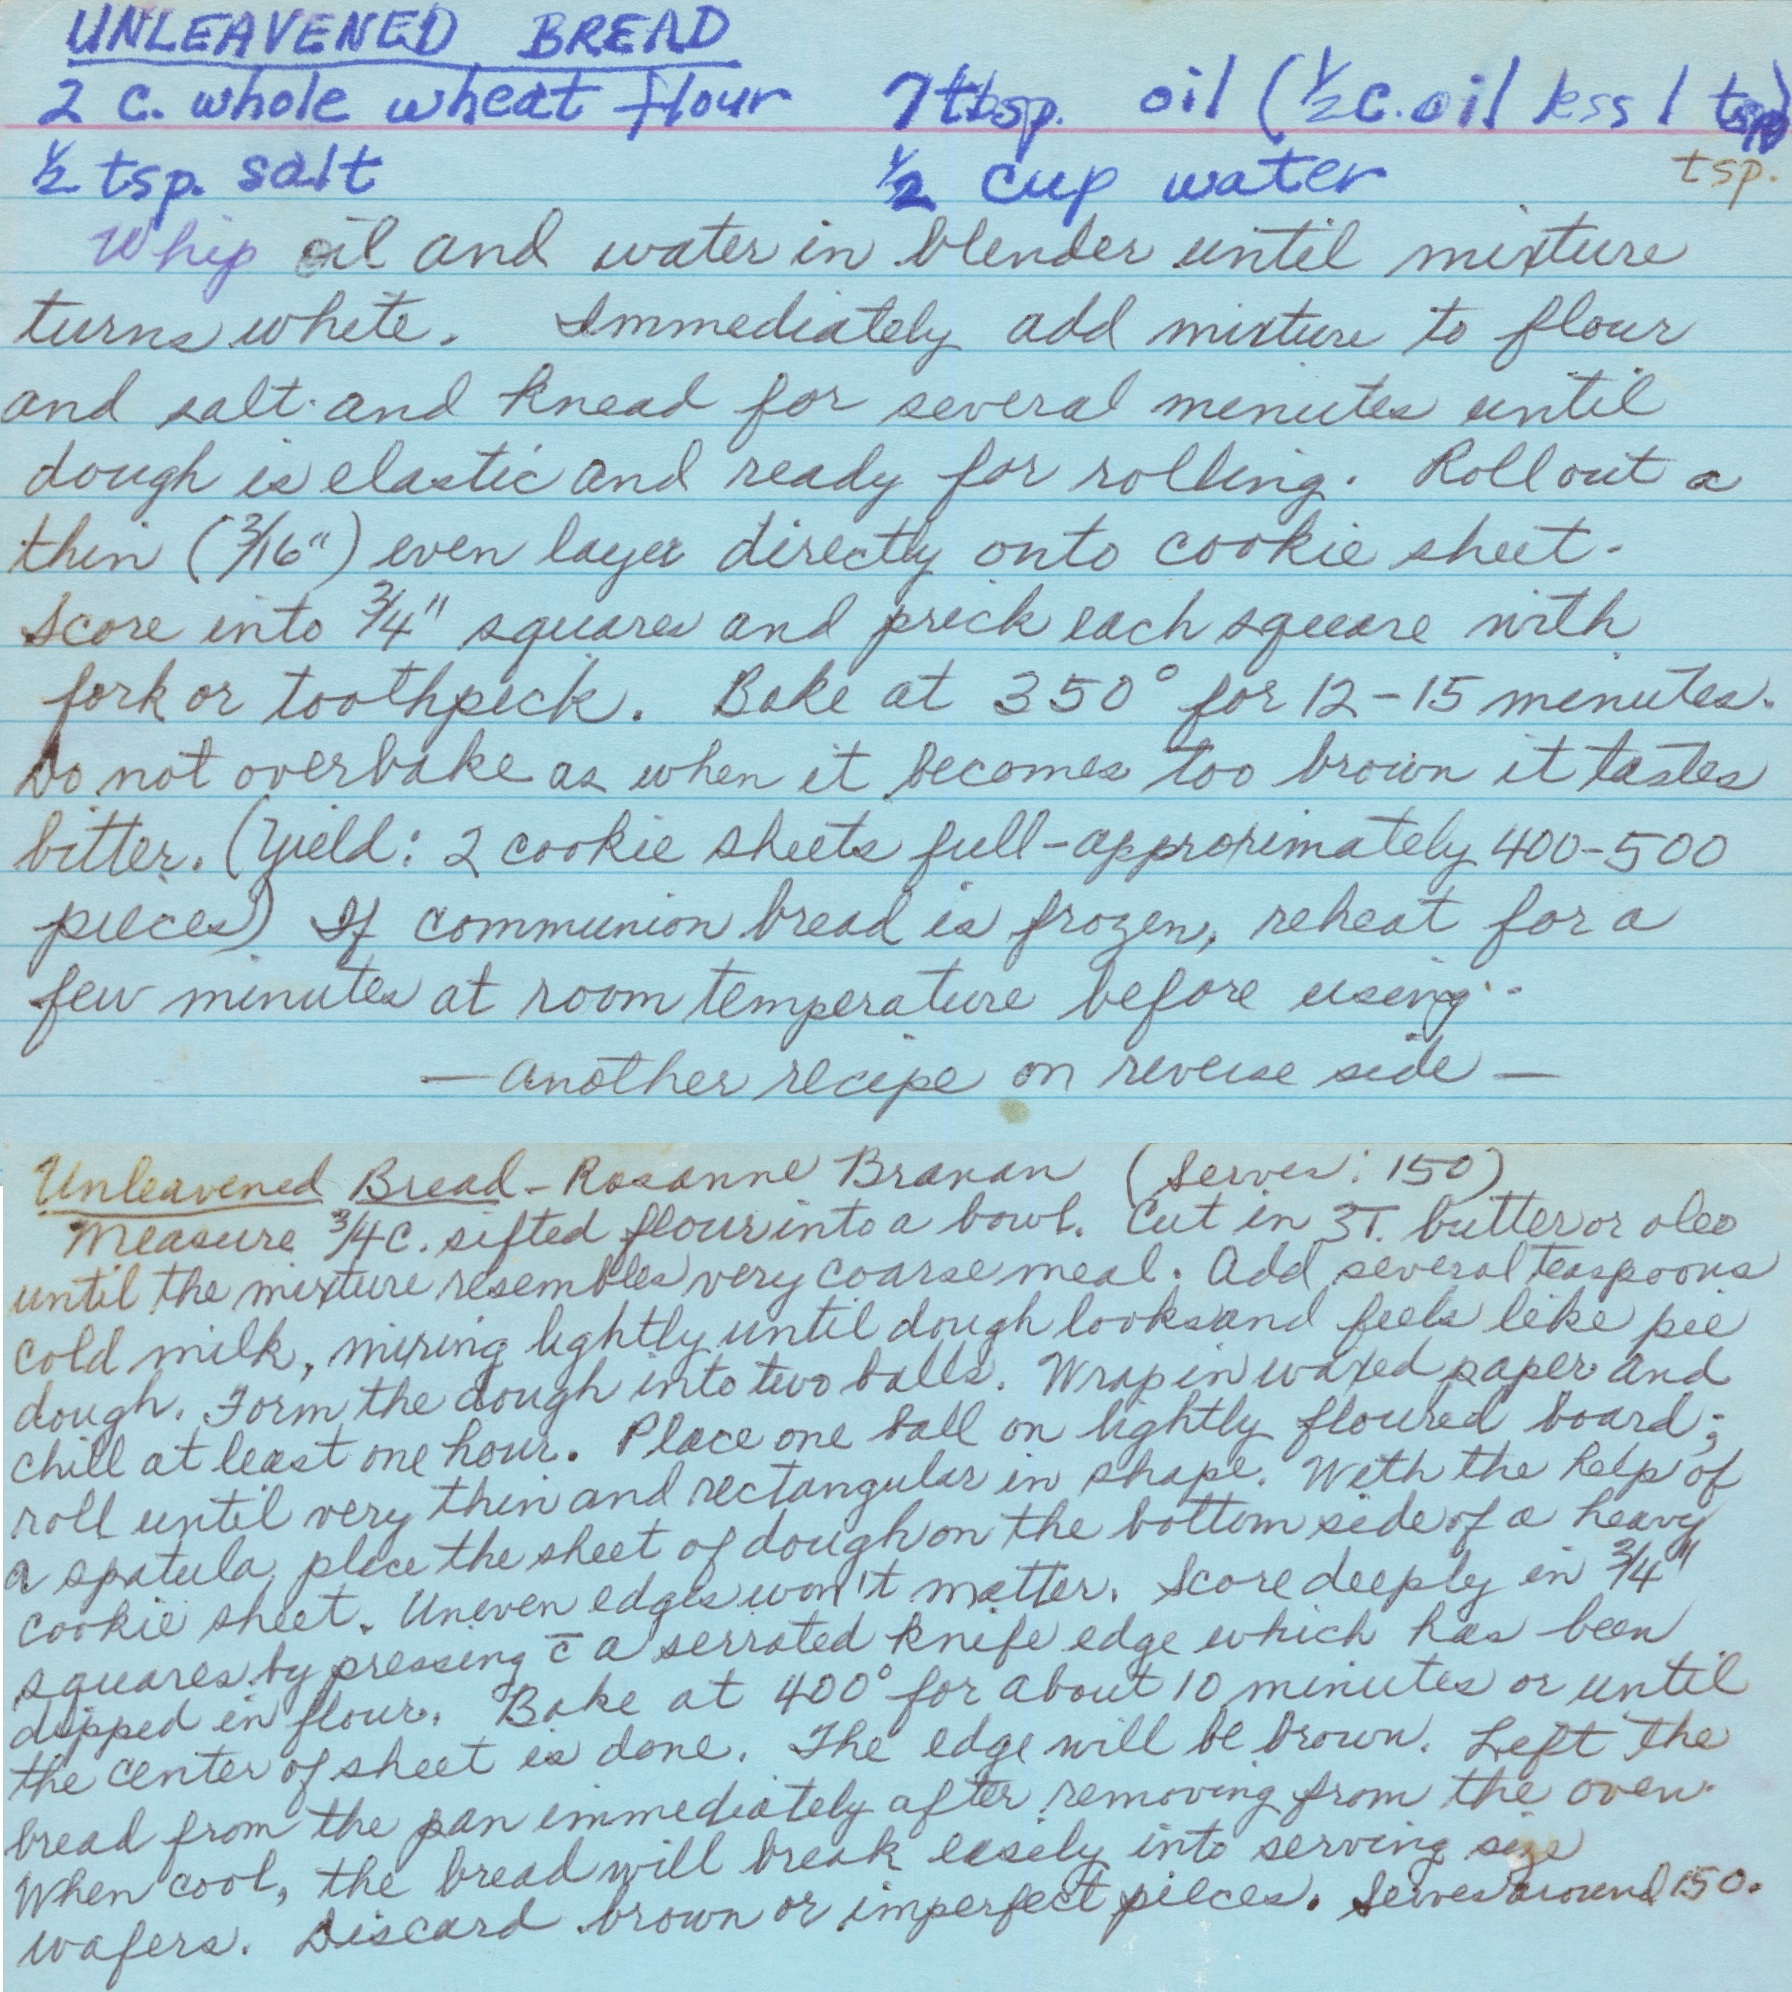 UNLEAVENED BREAD
2 c. whole wheat flour 7 tbsp. oil (1/2 c. oil less 1 tsp)
1/2 tsp. salt 1/2 cup water tsp.
Whip oil and water in blender until mixture
turns white. Immediately add mixture to flour
and salt and knead for several minutes until
dough is elastic and ready for rolling. Roll out a
thin (3/16") even layer directly onto cookie sheet.
Score into 3/4" squares and prick each square with
fork or toothpick. Bake at 350° for 12-15 minutes.
Do not overbake as when it becomes too brown it tastes
bitter. (Yield: 2 cookie sheets full-approximately 400-500
pieces) If communion bread is frozen, reheat for a
few minutes at room temperature before using.
— Another recipe on reverse side —
Unleavened Bread - Rosanne Branan (Serves: 150)
Measure 3/4 c. sifted flour into a bowl. Cut in 3T. butter or oleo
until the mixture resembles very coarse meal. Add several teaspoons
cold milk, mixing lightly until dough looks and feels like pie
dough. Form the dough into two balls. Wrap in waxed paper and
chill at least one hour. Place one ball on lightly floured board;
roll until very thin and rectangular in shape. With the help of
a spatula, place the sheet of dough on the bottom side of a heavy
cookie sheet. Uneven edges won't matter. Score deeply in 3/4"
squares by pressing c̄ a serrated knife edge which has been
dipped in flour. Bake at 400° for about 10 minutes or until
the center of sheet is done. The edge will be brown. Left the
bread from the pan immediately after removing from the oven.
When cool, the bread will break easily into serving size
wafers. Discard brown or imperfect pieces. Serves around 150.